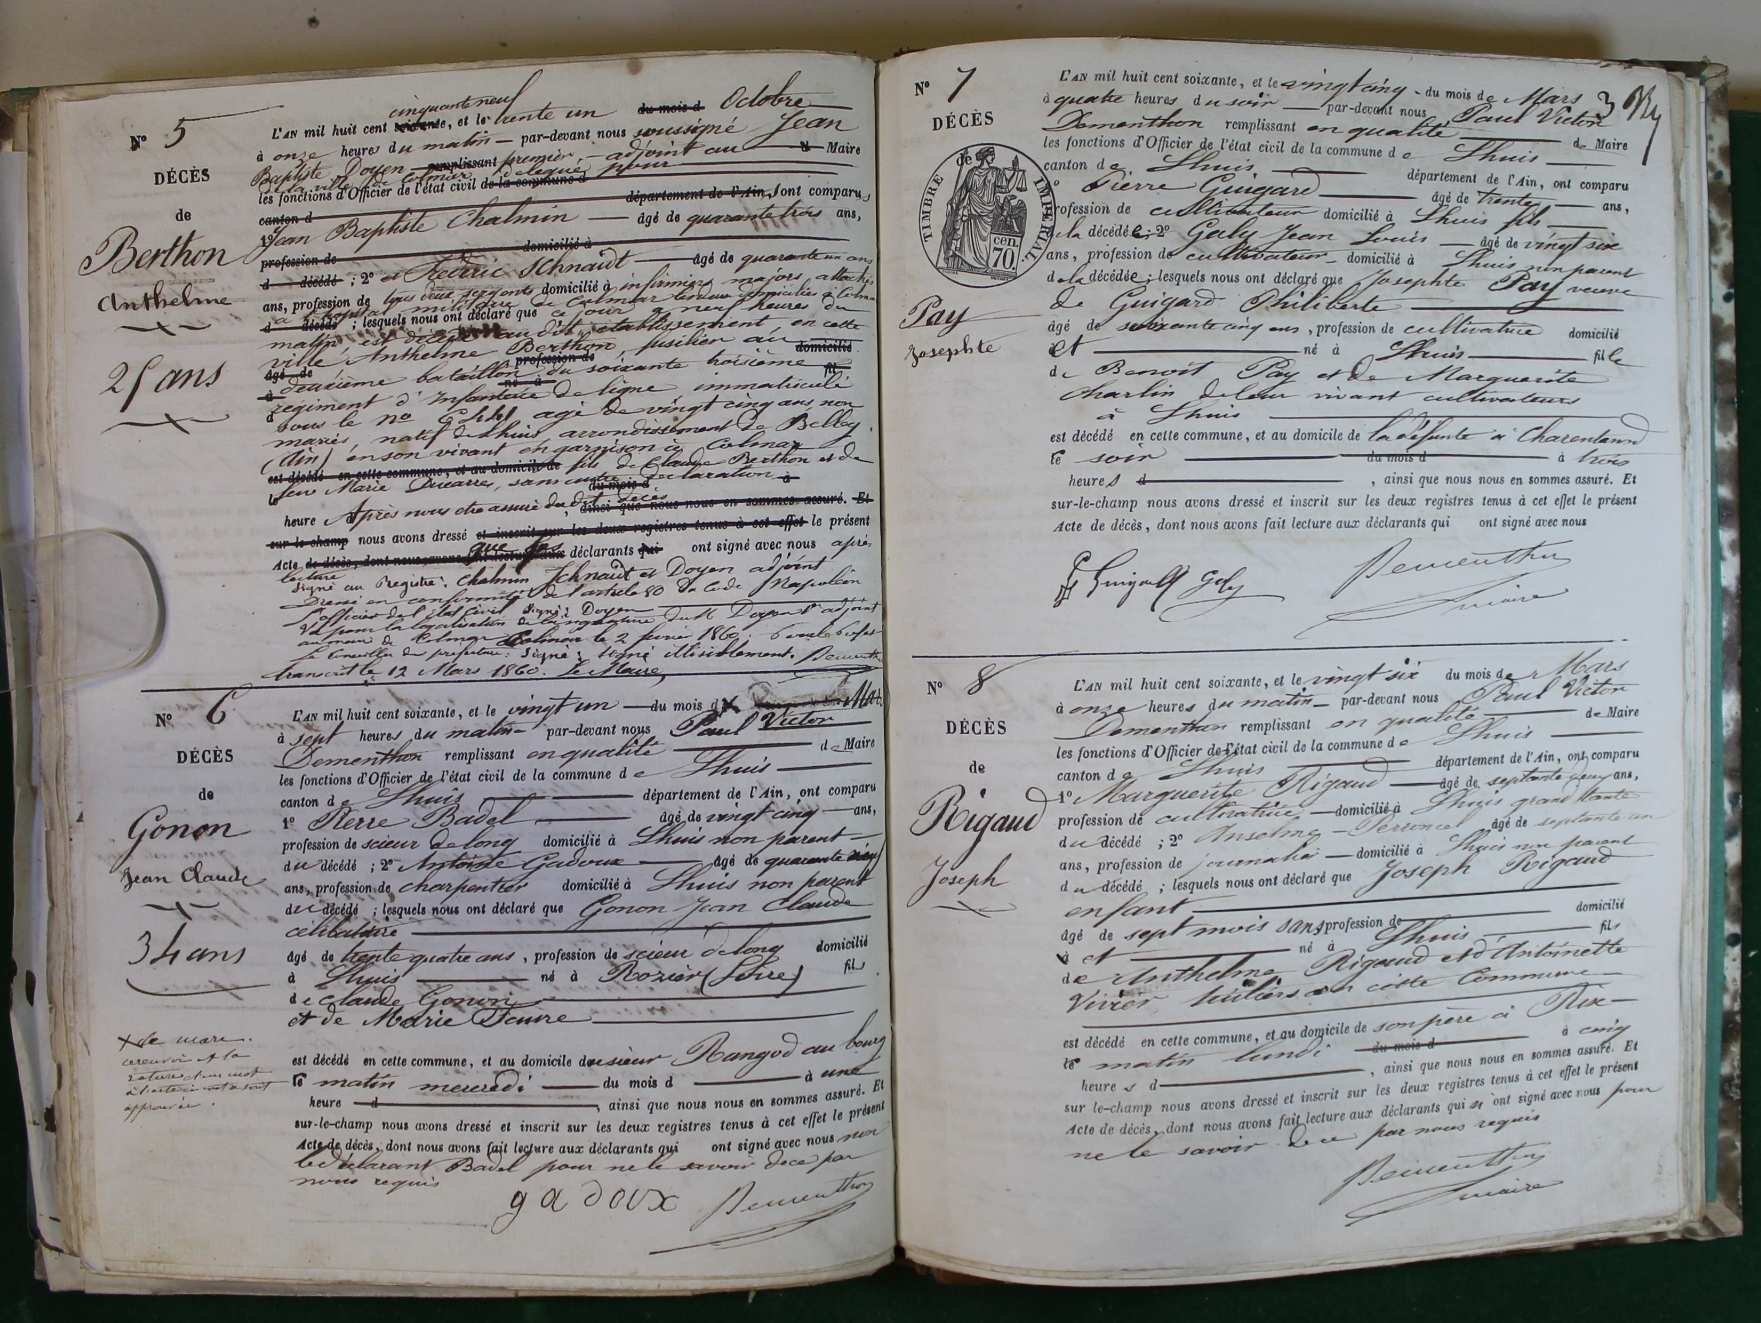 N° 5
DÉCÈS
de
Berthon
Anthelme
25 ans
cinquante neuf
L'AN mil huit cent soixante, et le trente un du mois d Octobre
à onze heures du matin par-devant nous soussigné Jean
Baptiste Doyen remplissant premier adjoint au Maire
de la ville de Colmar délégué pour
les fonctions d'Officier de l'état civil de la commune d
canton d département de l'Ain, sont comparus
1° Jean Baptiste Chalmin âgé de quarante trois ans,
profession de domicilié à
d décédé ; 2° et Frédéric Schnaidt âgé de quarante un ans
ans, profession de tous deux domicilié à infirmiers majors attachés
à l'hopital militaire de Colmar
d décédé ; lesquels nous ont déclaré que ce jour à neuf heures du
matin est décédé au dit établissement, en cette
ville, Anthelme Berthon fusilier au domicilié
âgé de profession de
deuxième bataillon du soixante troisième fil
à né à
régiment d'Infanterie de ligne immatriculé
sous le n° agé de vingt cinq ans non
mariés, natif de Lhuis arrondissement de Belley
(Ain) en son vivant en garnison à Colmar
est décédé en cette commune, et au domicile de fils de Claude Berthon et de
feue Marie Ducarres, sans autre déclaration
le du mois d à
heure Après nous être assuré du dit décès, ainsi que nous nous en sommes assuré. Et
sur-le-champ nous avons dressé et inscrit sur les deux registres tenus à cet effet le présent
Acte de décès, dont nous avons fait lecture aux que les déclarants qui ont signé avec nous après
lecture
Signé au Registre: Chalmin Schnaidt et Doyen adjoint
Dressé en conformité de l'article 80 du Code Napoléon
L'officier de l'état Civil signé: Doyen
Vu pour la légalisation de la signature de M Doyen adjoint
au maire de Colmar Colmar le 2 1860
Le Conseiller de préfecture: Signé: signé illisiblement.
transcrit le 12 Mars 1860. Le Maire,
N° 6
DÉCÈS
de
Gonon
Jean Claude
34 ans
L'AN mil huit cent soixante, et le vingt un du mois d X
à sept heures du matin par-devant nous Paul Victor
Dementhon remplissant en qualité de Maire
les fonctions d'Officier de l'état civil de la commune de Lhuis
canton de Lhuis département de l'Ain, ont comparu
1° Pierre Badel âgé de vingt cinq ans,
profession de scieur de long domicilié à Lhuis non parent
du décédé ; 2° Antoine Gadoux âgé de quarante cinq
ans, profession de charpentier domicilié à Lhuis non parent
du décédé ; lesquels nous ont déclaré que Gonon Jean Claude
célibataire
âgé de trente quatre ans, profession de scieur de long domicilié
à Lhuis né à Rozier (Loire) fils
de Claude Gonon
et de Marie Faure
X de mars.
approuvée.
est décédé en cette commune, et au domicile du sieur Rangod au bourg
le matin mercredi du mois d à une
heure d , ainsi que nous nous en sommes assuré. Et
sur-le-champ nous avons dressé et inscrit sur les deux registres tenus à cet effet le présent
Acte de décès, dont nous avons fait lecture aux déclarants qui ont signé avec nous non
le déclarant Badel pour ne le savoir de ce par
nous requis
gadoux Dementhon
N° 7
DÉCÈS
de
TIMBRE IMPÉRIAL
70 cen.
Pay
Josephte
3
L'AN mil huit cent soixante, et le vingt cinq du mois de Mars
à quatre heures du soir par-devant nous Paul Victor
Dementhon remplissant en qualité de Maire
les fonctions d'Officier de l'état civil de la commune de Lhuis
canton de Lhuis, département de l'Ain, ont comparu
1° Pierre Guigard âgé de trente ans,
profession de cultivateur domicilié à Lhuis fils
de la décédée; 2° Galy Jean Louis âgé de vingt six
ans, profession de cultivateur domicilié à Lhuis non parent
de la décédée ; lesquels nous ont déclaré que Josephte Pay veuve
de Guigard Philiberte
âgé de soixante cinq ans, profession de cultivatrice domicilié
et né à Lhuis fille
de Benoit Pay et de Marguerite
Charlin de leur vivant cultivateurs
à Lhuis
est décédé en cette commune, et au domicile de la défunte à Charenland
le soir du mois d à trois
heures d , ainsi que nous nous en sommes assuré. Et
sur-le-champ nous avons dressé et inscrit sur les deux registres tenus à cet effet le présent
Acte de décès, dont nous avons fait lecture aux déclarants qui ont signé avec nous
Guigard Galy Dementhon
maire
N° 8
DÉCÈS
de
Rigaud
Joseph
L'AN mil huit cent soixante, et le vingt six du mois de Mars
à onze heures du matin par-devant nous Paul Victor
Dementhon remplissant en qualité de Maire
les fonctions d'Officier de l'état civil de la commune de Lhuis
canton de Lhuis département de l'Ain, ont comparu
1° Marguerite Rigaud âgé de septante deux ans,
profession de cultivatrice domicilié à Lhuis grand'tante
du décédé ; 2° Anselme Perroncel âgé de septante un
ans, profession de journalier domicilié à Lhuis non parent
du décédé ; lesquels nous ont déclaré que Joseph Rigaud
enfant
âgé de sept mois sans profession de domicilié
à et né à Lhuis fils
de Anthelme Rigaud et d'Antoinette
Vivier huiliers en cette Commune
est décédé en cette commune, et au domicile de son père à Rix
le matin lundi du mois d à cinq
heures d , ainsi que nous nous en sommes assuré. Et
sur le-champ nous avons dressé et inscrit sur les deux registres tenus à cet effet le présent
Acte de décès, dont nous avons fait lecture aux déclarants qui n'ont signé avec nous pour
ne le savoir de ce par nous requis
Dementhon
maire